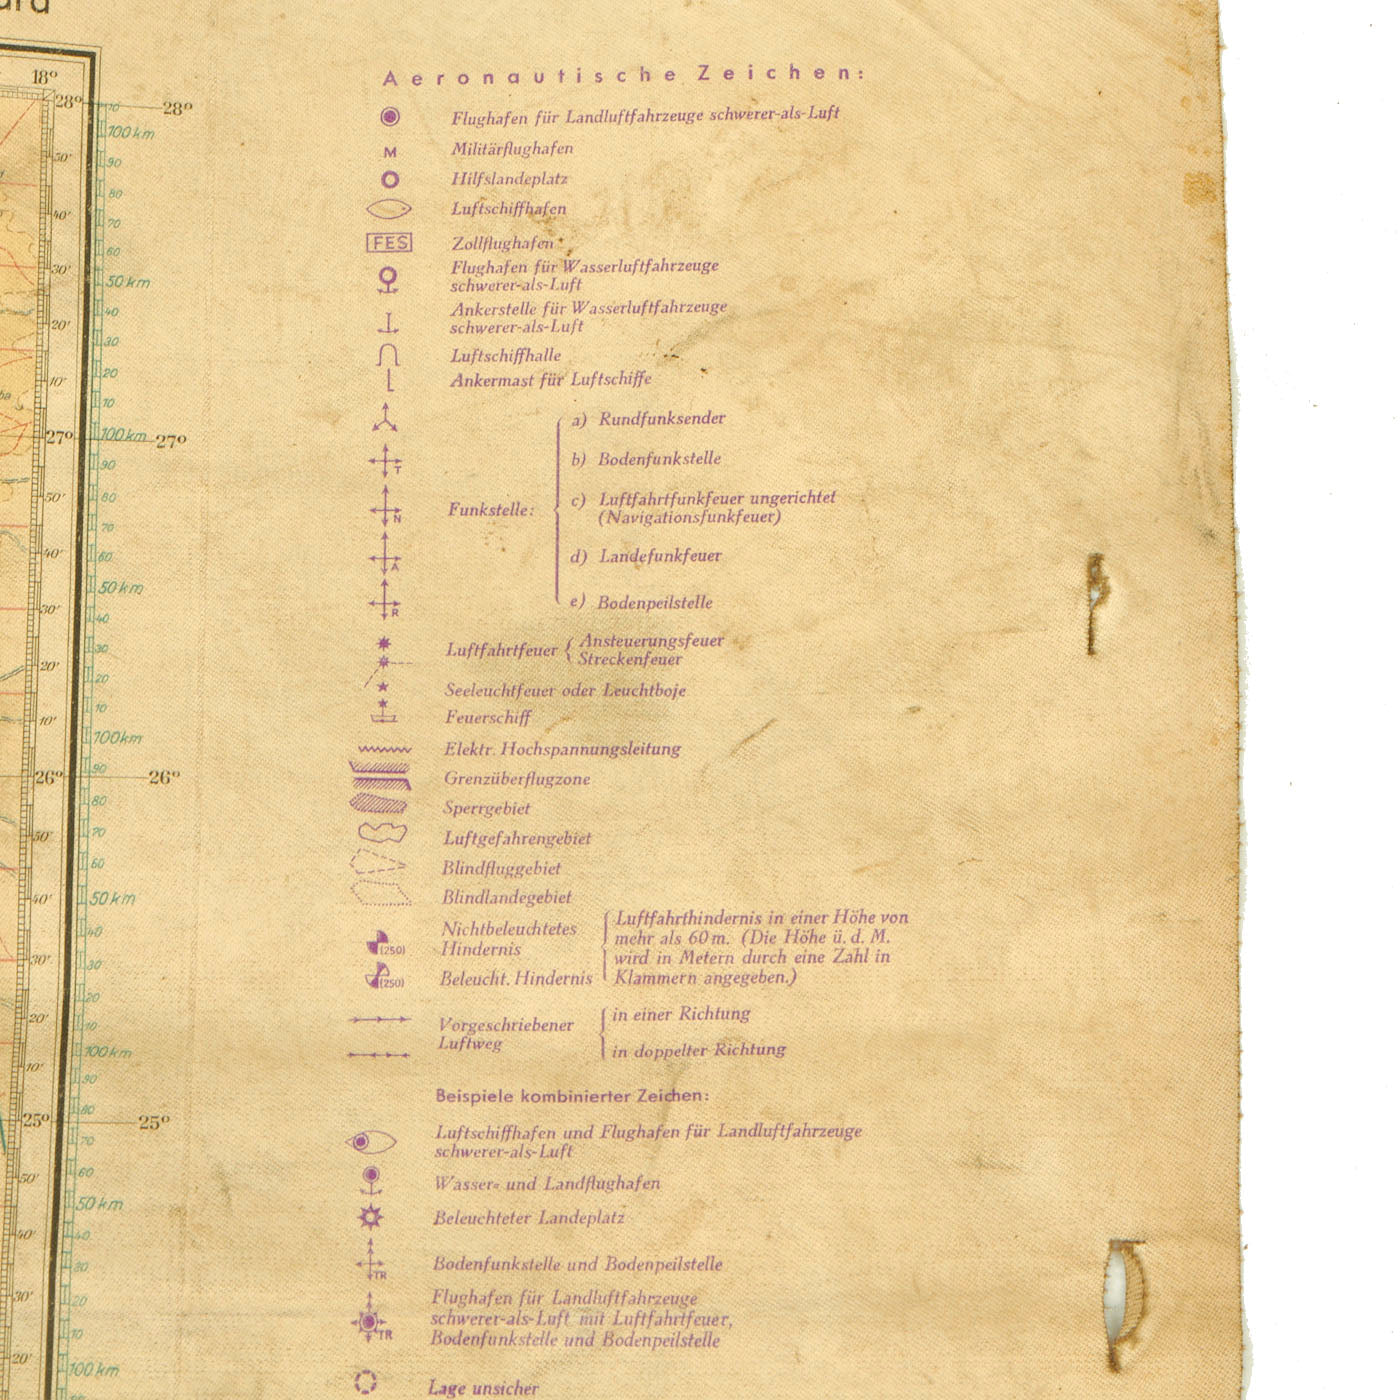 18°
28°
28°
70
100 km
90
50'
80
40'
70
60
30'
50 km
40
20'
30
20
10'
10
27°
100 km
27°
90
50'
80
70
40'
60
50 km
30'
40
30
20'
20
10
10'
100 km
26°
90
26°
80
50'
70
60
40'
50 km
40
30'
30
20
20'
10
100 km
10'
90
80
25°
25°
70
50'
60
50 km
40'
40
30
30'
20
10
20'
100 km
Aeronautische Zeichen:
Flughafen für Landluftfahrzeuge schwerer-als-Luft
M Militärflughafen
Hilfslandeplatz
Luftschiffhafen
FES Zollflughafen
Flughafen für Wasserluftfahrzeuge
schwerer-als-Luft
Ankerstelle für Wasserluftfahrzeuge
schwerer-als-Luft
Luftschiffhalle
Ankermast für Luftschiffe
a) Rundfunksender
T b) Bodenfunkstelle
c) Luftfahrtfunkfeuer ungerichtet
N Funkstelle: (Navigationsfunkfeuer)
A d) Landefunkfeuer
R e) Bodenpeilstelle
Luftfahrtfeuer { Ansteuerungsfeuer
Streckenfeuer
Seeleuchtfeuer oder Leuchtboje
Feuerschiff
Elektr. Hochspannungsleitung
Grenzüberflugzone
Sperrgebiet
Luftgefahrengebiet
Blindfluggebiet
Blindlandegebiet
Nichtbeleuchtetes
(250) Hindernis
(250) Beleucht. Hindernis
Luftfahrthindernis in einer Höhe von
mehr als 60 m. (Die Höhe ü. d. M.
wird in Metern durch eine Zahl in
Klammern angegeben.)
Vorgeschriebener
Luftweg
in einer Richtung
in doppelter Richtung
Beispiele kombinierter Zeichen:
Luftschiffhafen und Flughafen für Landluftfahrzeuge
schwerer-als-Luft
Wasser- und Landflughafen
Beleuchteter Landeplatz
TR Bodenfunkstelle und Bodenpeilstelle
Flughafen für Landluftfahrzeuge
schwerer-als-Luft mit Luftfahrtfeuer,
TR Bodenfunkstelle und Bodenpeilstelle
Lage unsicher